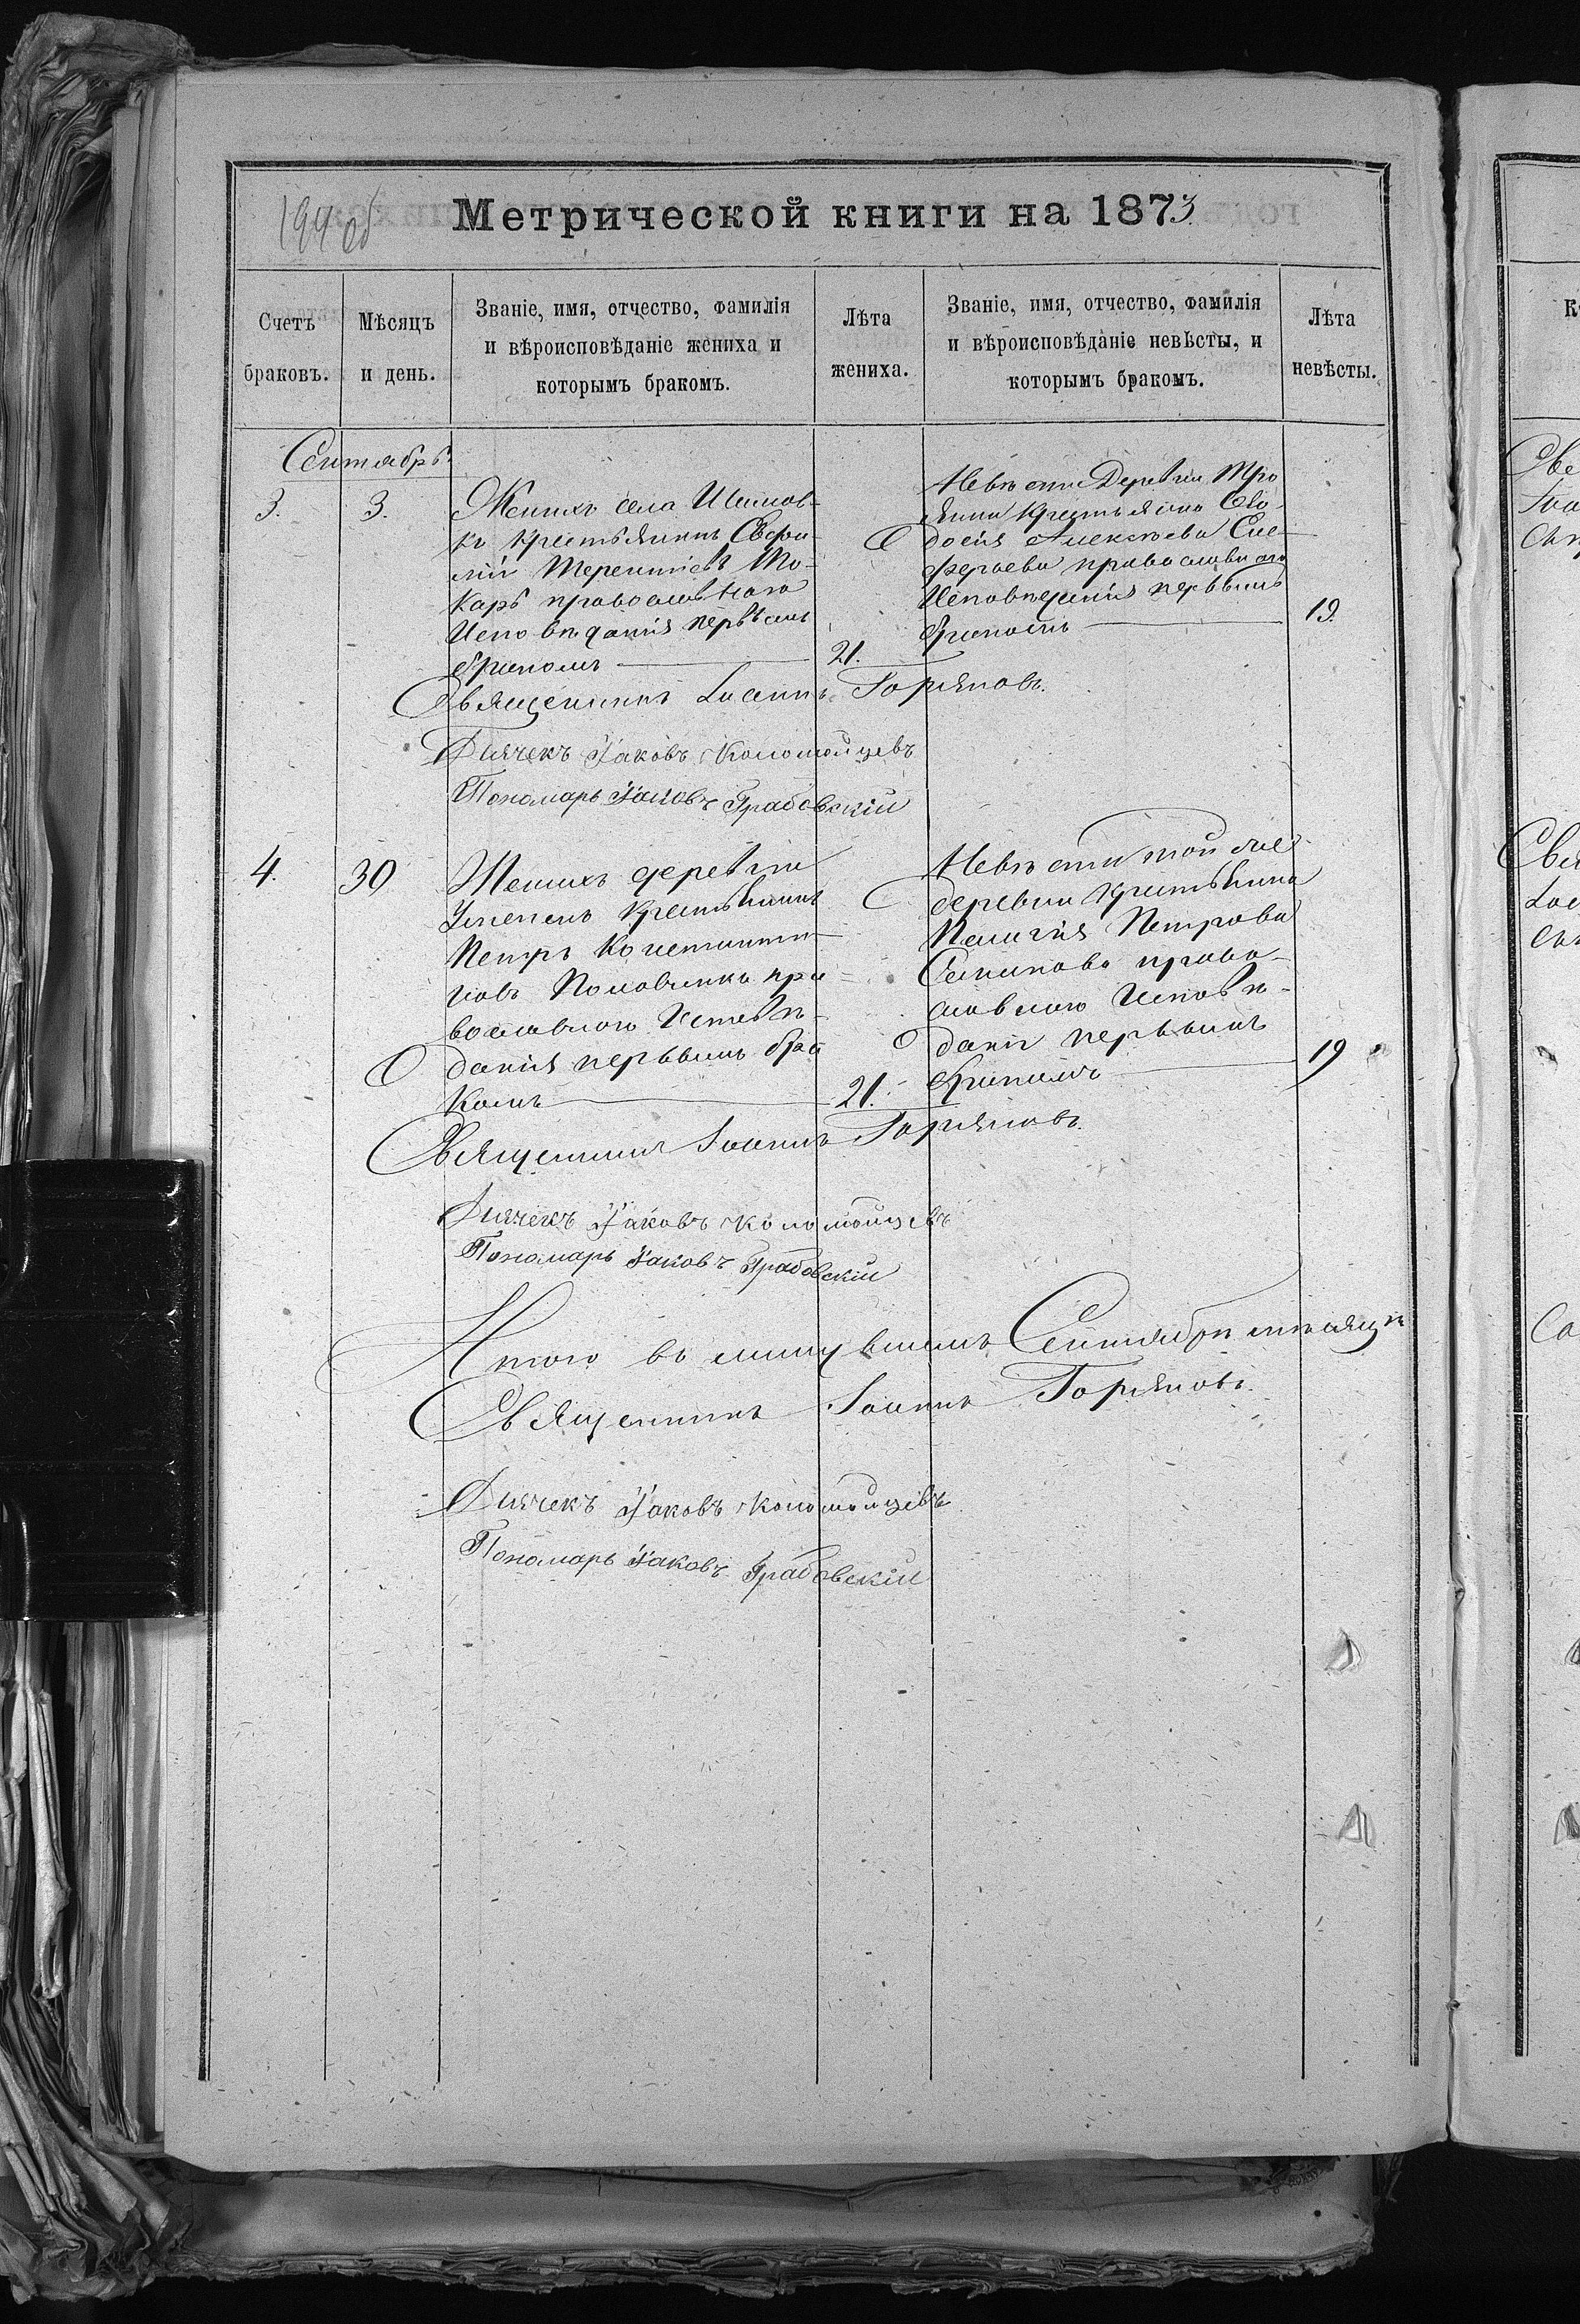 194 об
Метрической книги на 1873
Счетъ браковъ.
Мѣсяцъ и день.
Званіе, имя, отчество, фамилія
и вѣроисповѣданіе жениха и
которымъ бракомъ.
Лѣта жениха.
Званіе, имя, отчество, фамилія
и вѣроисповѣданіе невѣсты, и
которымъ бракомъ.
Лѣта невѣсты.
Сентябрь
3.
3.
Женихъ села
крестьянинъ
Терентіевъ То-
карь православнаго
Исповѣданія первымъ
бракомъ
21.
Невѣста Деревни Тро
крестьянка Ево-
докія Алексѣева Еле-
ферьева православнаго
Исповѣданія первымъ
бракомъ
19.
Священникъ Іоаннъ Горяновъ.
Дьячекъ Іаковъ Коломойцевъ
Пономарь Іаковъ Грабовскій
4.
30
Женихъ деревни
крестьянинъ
Петръ Константи-
новъ Половинка пра-
вославного Исповѣ-
данія первымъ бра
комъ
21.
Невѣста той же
деревни крестьянка
Пелагія Петрова
Семикова право-
славного Исповѣ-
данія первымъ
бракомъ
19
Священникъ Іоаннъ Горяновъ.
Дьячекъ Іаковъ Коломойцевъ
Пономарь Іаковъ Грабовскій
Итого въ минувшемъ Сентябрѣ мѣсяцѣ
Священникъ Іоаннъ Горяновъ.
Дьячекъ Іаковъ Коломойцевъ
Пономарь Іаковъ Грабовскій